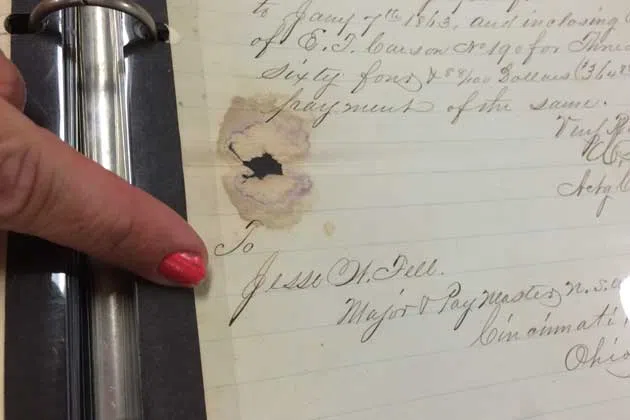 to Jany 7th 1863. and inclosing
of E. T. Carson No 190 for Three
sixty four & 88/100 Dollars ($364 88
payment of the same.
Very
Actg
To
Jesse W. Fell.
Major & Pay Master, U. S. A
Cincinnati
Ohio